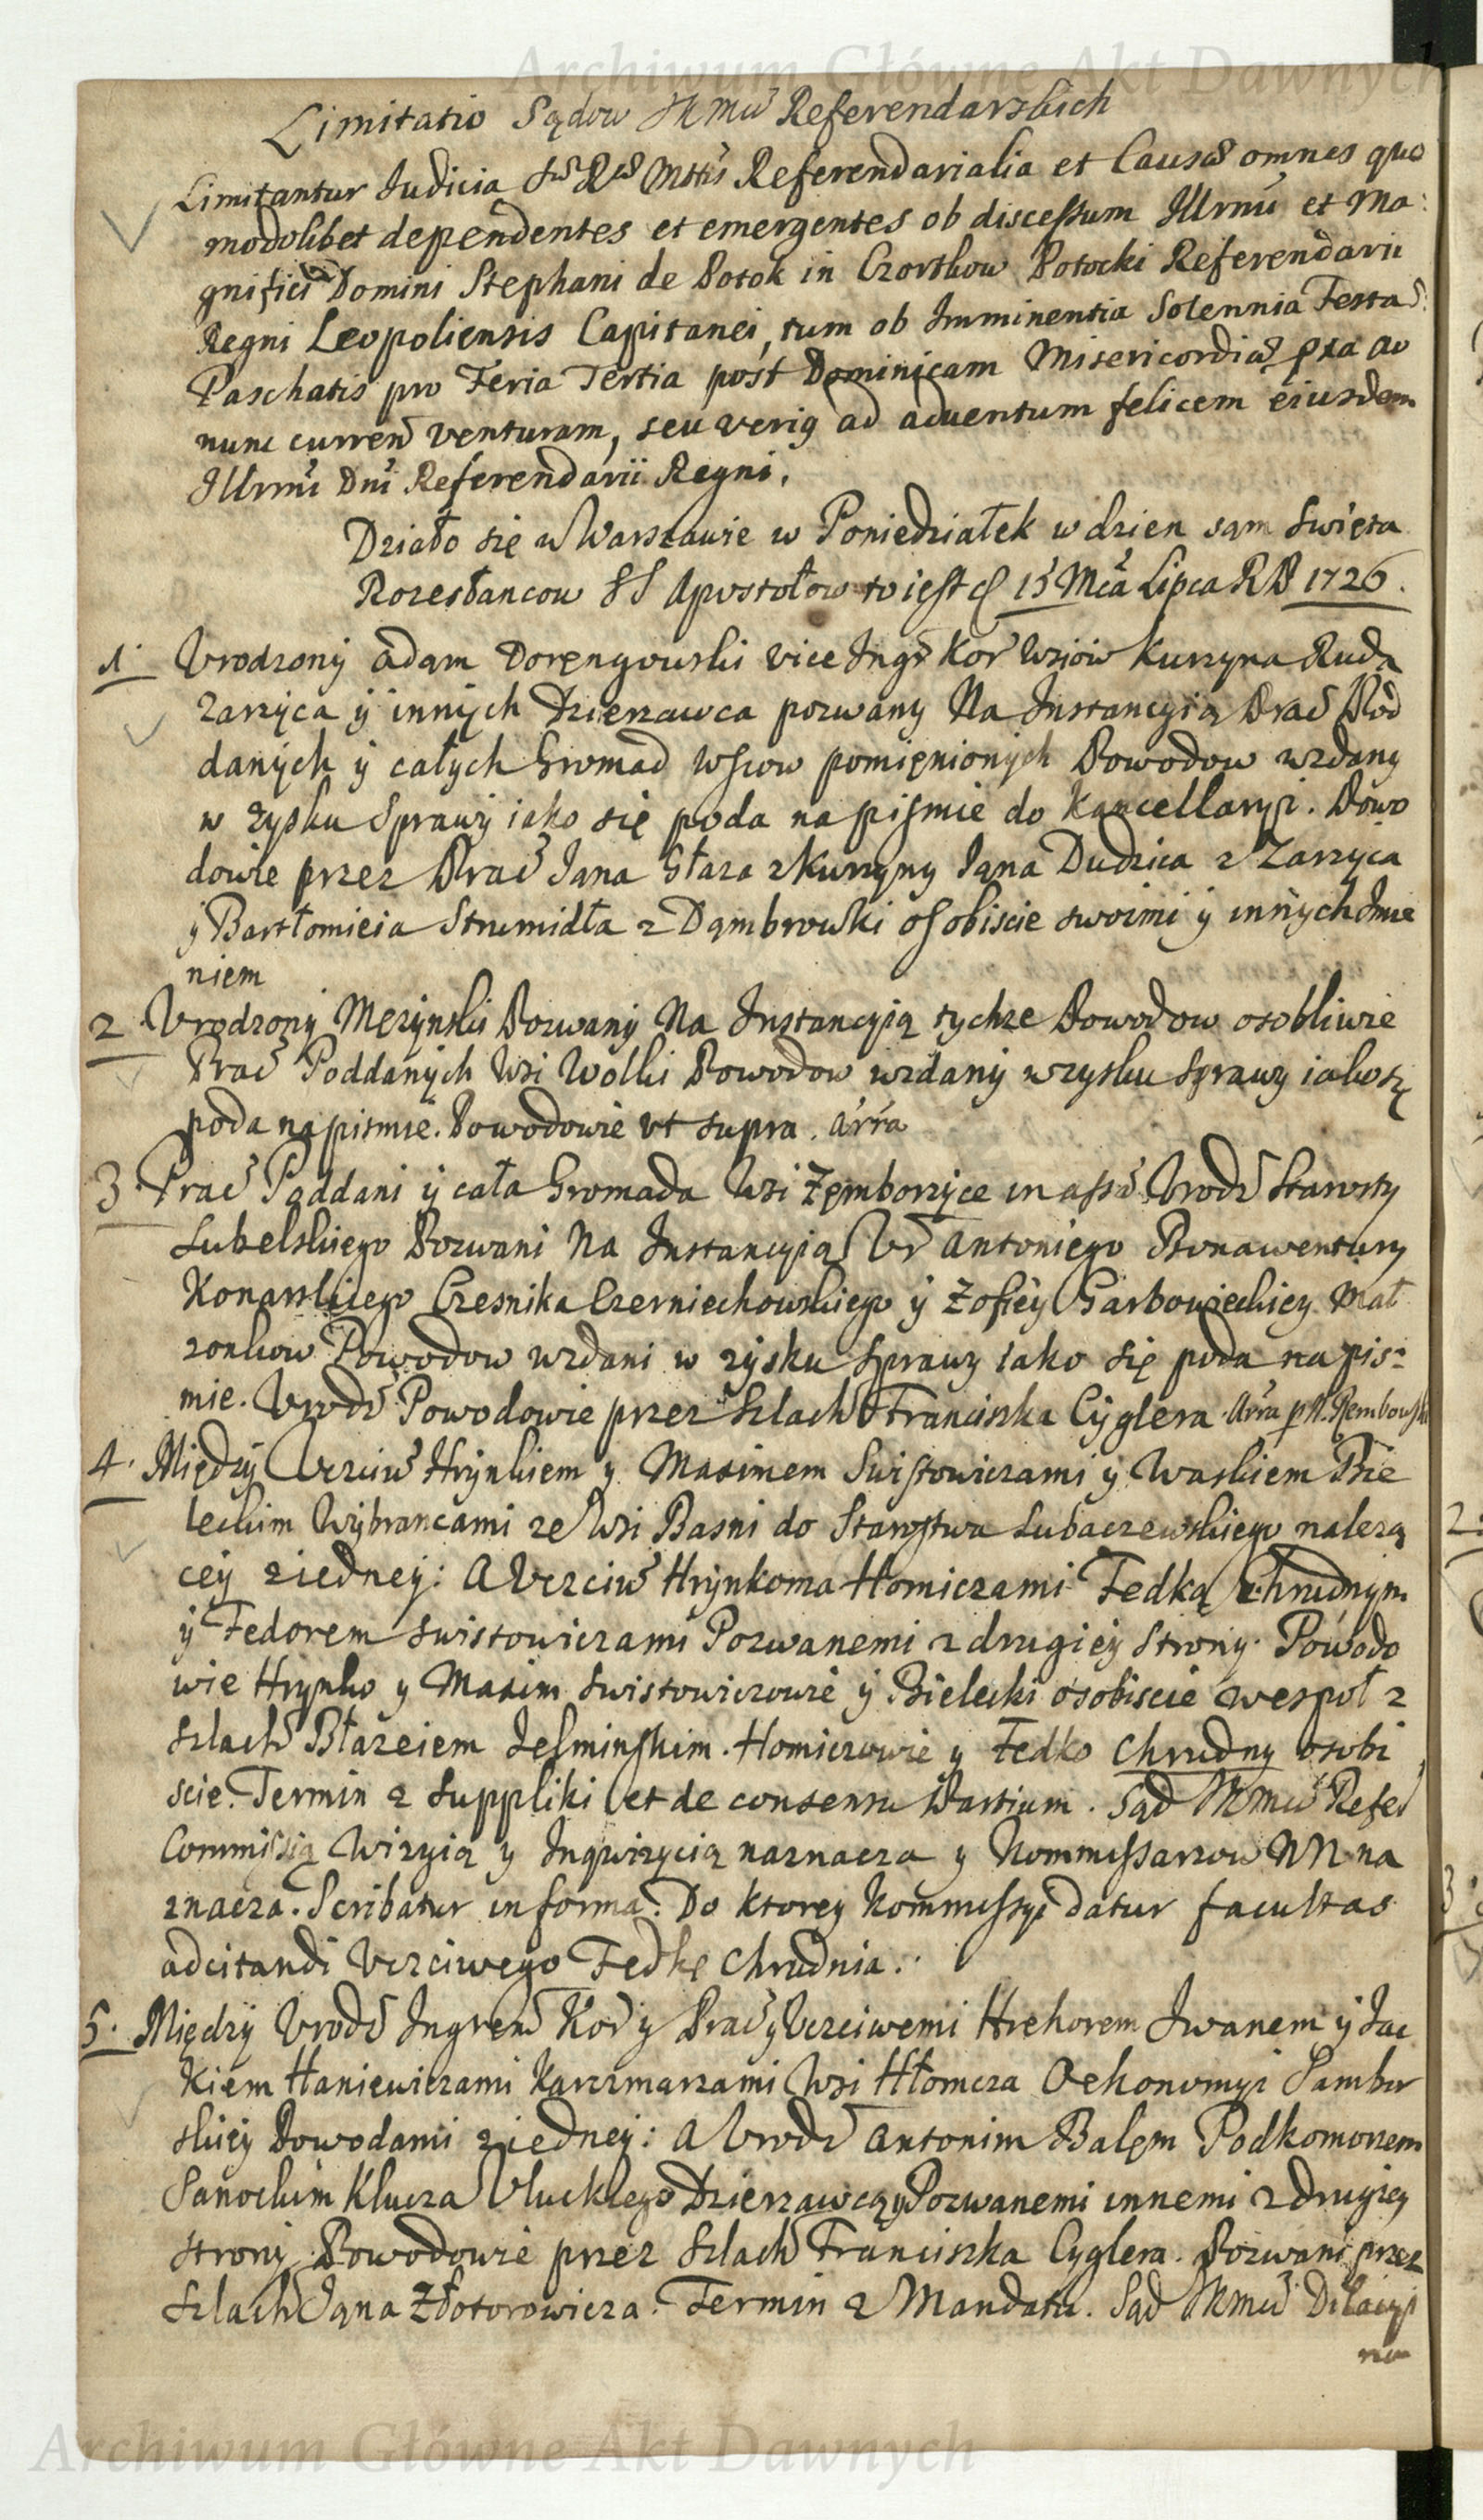 Archiwum Główne Akt Dawnych
Limitatio Sądow JKMći Referendarskich
Limitantur Judicia Sæ Ræ Mttis Referendarialia et Causas omnes quo
modolibet dependentes et emergentes ob discessum Illrmi et Ma:
gnifici Domini Stephani de Potok in Czortkow Potocki Referendarii
Regni Leopoliensis Capitanei, tum ob Imminentia Solennia Festa S.
Paschatis pro Feria Tertia post Dominicam Misericordiæ pxa ao
nunc curren venturam, seu verig ad adventum felicem eiusdem
Illrmi Dni Referendarii Regni.
Działo się w Warszawie w Poniedziałek w dzien sąm Swięta
Rozesłancow SS Apostołow to iest d 15 Mca Lipca RP 1726.
1. Vrodzony Adąm Doręngowski vice Jngr Kor Wsiów Kurzyna Ruda
Zarzyca y innych Dzierzawca pozwany Na Jnstancyią Prac Pod
danych y całych Gromad Wsiow pomięnionych Powodow wzdany
w zysku Sprawy iako się poda na piśmie do Kancellaryi. Powo
dowie przez Prac Jana Głaza z Kurzyny Jąna Dudzica z Zarzyca
y Bartłomieia Strumidła z Dąmbrowki osobiscie swoimi y innych Jmie
niem
2. Vrodzony Męzynski Pozwany Na Jnstancyią tychze Powodow osobliwie
Prac Poddanych Wsi Wolki Powodow wzdany w zysku Sprawy iako się
poda na pismie. Powodowie vt supra. Arra
3. Prac Poddani y cała Gromada Wsi Zęmborzyce in assa Vrodz Starosty
Lubelskiego Pozwani Na Jnstancyią Vr Antoniego Bonawentury
Konarskiego Czesnika Czerniechowskiego y Zofiey Garbowieckiey Mał
zonkow Powodow wzdani w zysku Sprawy iako się poda na pis:
mie. Vrodz Powodowie przez Szlach Franciszka Cyglera. Arra p N. Rembowski
4. Między Vczciw Hrynkiem y Maximem Swistowiczami y Waskiem Bie
leckim Wybrancami ze Wsi Basni do Starostwa Lubaczewskiego nalezą
cey ziedney: A Vczciw Hrynkoma Homiczami Fedką Chrudnym
y Fedorem Swistowiczami Pozwanemi z drugiey Strony. Powodo
wie Hrynko y Maxim Swistowiczowie y Bielecki osobiscie wespoł z
Szlach Błazeiem Jesminskim. Homiczowie y Fedko Chrudny osobi
scie. Termin z Suppliki et de consensu Partium. Sąd JKMći Refer
Commissią Wizyią y Jnqwizycią naznacza y Kommissarzow NN na
znacza. Scribatur in forma. Do ktorey Kommissyi datur facultas
adcitandi Vczciwego Fedkę Chrudnia.
5. Między Vrodz Jngrem Kor y Prac y Vczciwemi Hrehorem Jwanem y Jac
kiem Haniewiczami Karczmarzami Wsi Hłomcza Oekonomyi Sambor
skiey Powodami ziedney: A Vrodz Antonim Balęm Podkomorzem
Sanockim Klucza Vluckiego Dzierzawcą y Pozwanemi innemi z drugiey
strony. Powodowie przez Szlach Franciszka Cyglera. Pozwani przez
Szlach Jąna Złotorowicza. Termin z Mandatu. Sąd JKMći Dilacyi
na
Archiwum Główne Akt Dawnych